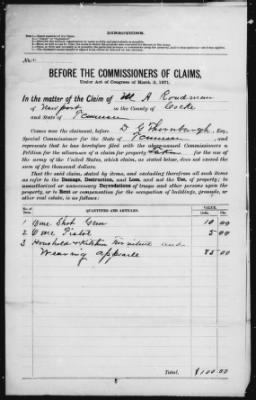 BEFORE THE COMMISSIONERS OF CLAIMS,
Under Act of Congress of March 3, 1871.
In the matter of the Claim of M A Roadman
of New port in the County of Cocke
and State of Tennessee
Comes now the claimant, before D. G. Thornburgh, Esq.,
Special Commissioner for the State of Tennessee, and
represents that he has heretofore filed with the above-named Commissioners a
Petition for the allowance of a claim for property taken for the use of
the army of the United States, which claim, as stated below, does not exceed the
sum of five thousand dollars.
That the said claim, stated by items, and excluding therefrom all such items
as refer to the Damage, Destruction, and Loss, and not the Use, of property; to
unauthorized or unnecessary Depredations of troops and other persons upon the
property, or to Rent or compensation for the occupation of buildings, grounds, or
other real estate, is as follows:
No. QUANTITIES AND ARTICLES. VALUE.
1 One Shot Gun 10 00
2 One Pistol 5 00
3 Household & Kitchen Furniture and
Wearing apparell 85 00
Total. $ 100 00